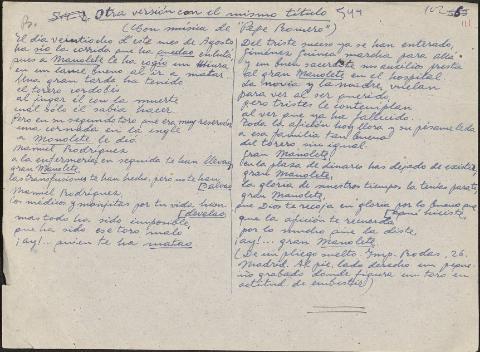 Otra versión con el mismo título 544
102-5
(Con música de "Pepe Romero")
El día veintiocho d'este mes de Agosto
ha sío la corrida que ha
pues a Manolete le ha cogío un Miura
en un lance bueno al ir a matar
Una gran tarde ha tenido
el torero cordobés
al jugar él con la muerte
cual sólo él sabía hacer
Pero en su segundo toro que era muy
una cornada en la ingle
a Manolete le dió.
Manuel Rodríguez
a la enfermería en seguida te han
gran Manolete,
las transfusiones te han hecho, pero no te han
[salvao
Manuel Rodríguez,
los médicos y por tu vida han
[desvelao
mas todo ha sido imposible,
que ha sido ese toro malo
¡ay!... quien te ha matao
Del triste suceso ya se han enterado,
marcha para allá
y un buen sacerdote sus auxilios presta
al gran Manolete en el hospital
Su novia y la madre, vuelan
para ver al ser querido,
pero tristes le contemplan
al ver que ya ha fallecido...
Toda la afición hoy llora y su pésame le da
a esa familia tan buena
del torero sin igual.
Gran Manolete,
en la plaza de Linares has dejado de existir,
gran Manolete,
la gloria de nuestros tiempos la tenías para ti,
gran Manolete,
que Dios te recoja en gloria por lo bueno que
[aquí hiciste
que la afición te recuerda
por lo mucho que la diste,
¡ay!... gran Manolete
(De un pliego suelto. Imp. Rodas, 26.
Madrid. Al pie, lado derecho un peque-
ño grabado donde figura un toro en
actitud de embestir)